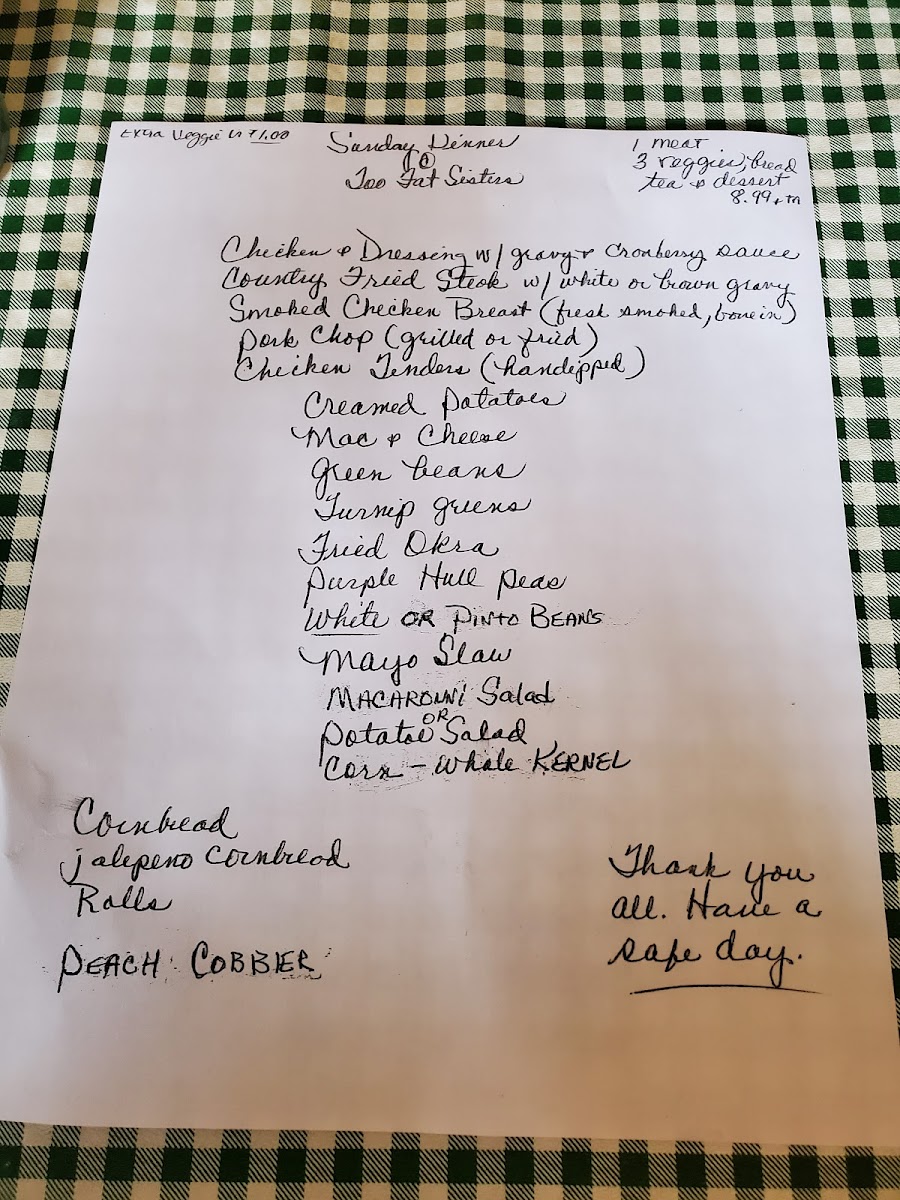 Extra Veggie is $1.00
Sunday Dinner
@
Too Fat Sisters
1 meat
3 veggies, bread
tea & dessert
8.99 + tx
Chicken & Dressing w/ gravy & Cronberry sauce
Country Fried Steak w/ white or brown gravy
Smoked Chicken Breast (fresh smoked, bone in)
Pork Chop (grilled or fried)
Chicken Tenders (handipped)
Creamed Potatoes
Mac & Cheese
Green beans
Turnip greens
Fried Okra
Purple Hull Peas
White OR PINTO BEANS
Mayo Slaw
MACARONNI Salad
OR
Potatoe Salad
Corn - Whole KERNEL
Cornbread
jalepeno Cornbread
Rolls
PEACH COBBLER
Thank you
all. Have a
safe day.